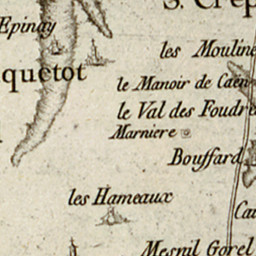 S. Crep
Epinay
les Mouline
quetot
le Manoir de Caen
le Val des Foudre
Marniere
Bouffard
les Hameaux
Cau
Mesnil Gorel